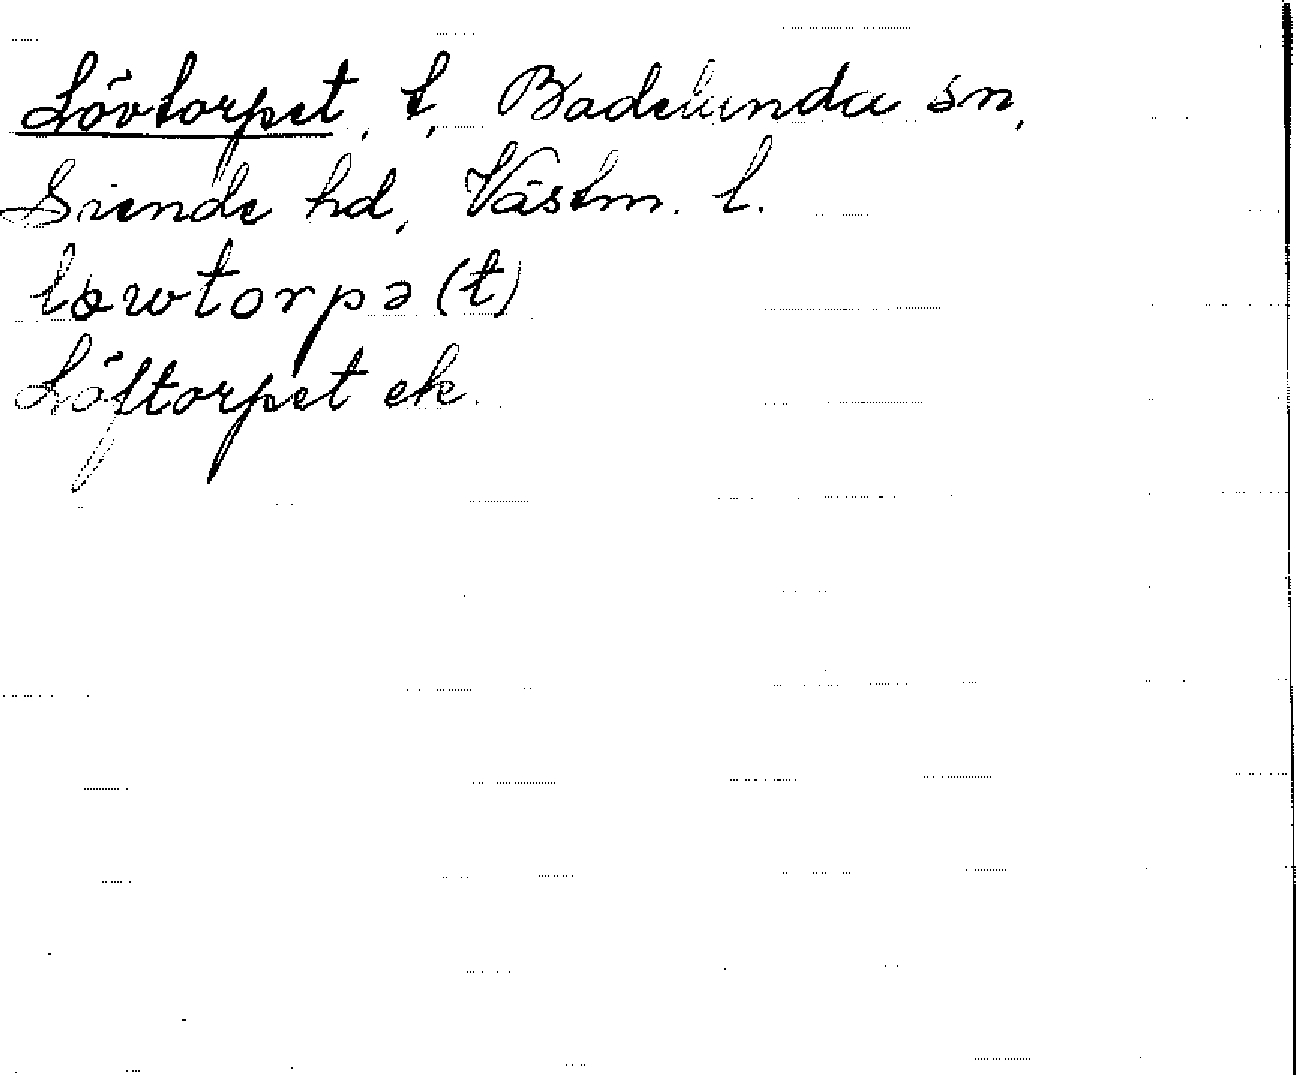 Lövtorpet, t, Badelunda sn,
Siende hd, Västm. l.
løwtorpə (t)
Löftorpet ek.